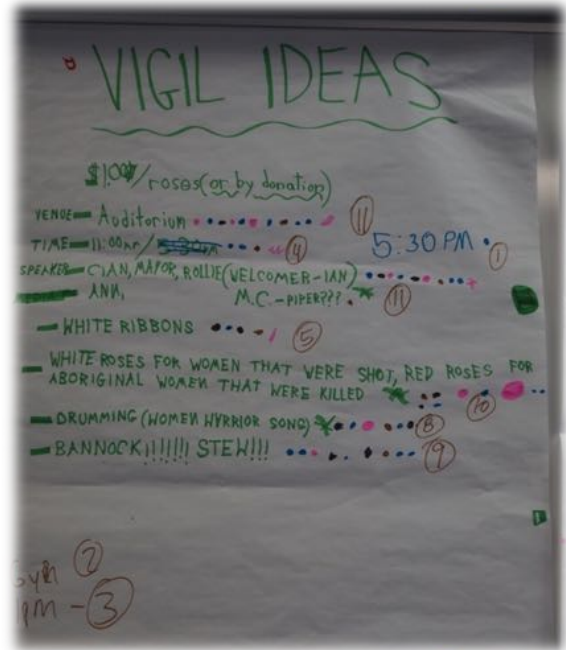 VIGIL IDEAS
$1.00/roses(or by donation)
VENUE— Auditorium 11
TIME— 11:00am/ 4 5:30 PM 1
SPEAKER— CIAN, MAYOR, ROLLIE(WELCOMER-IAN) 11
ANN, M.C.-PIPER???
— WHITE RIBBONS 5
— WHITE ROSES FOR WOMEN THAT WERE SHOT, RED ROSES FOR
ABORIGINAL WOMEN THAT WERE KILLED 10
— DRUMMING (WOMEN WARRIOR SONG) 8
— BANNOCK!!!!!!! STEW!!! 9
Gym 2
1PM - 3